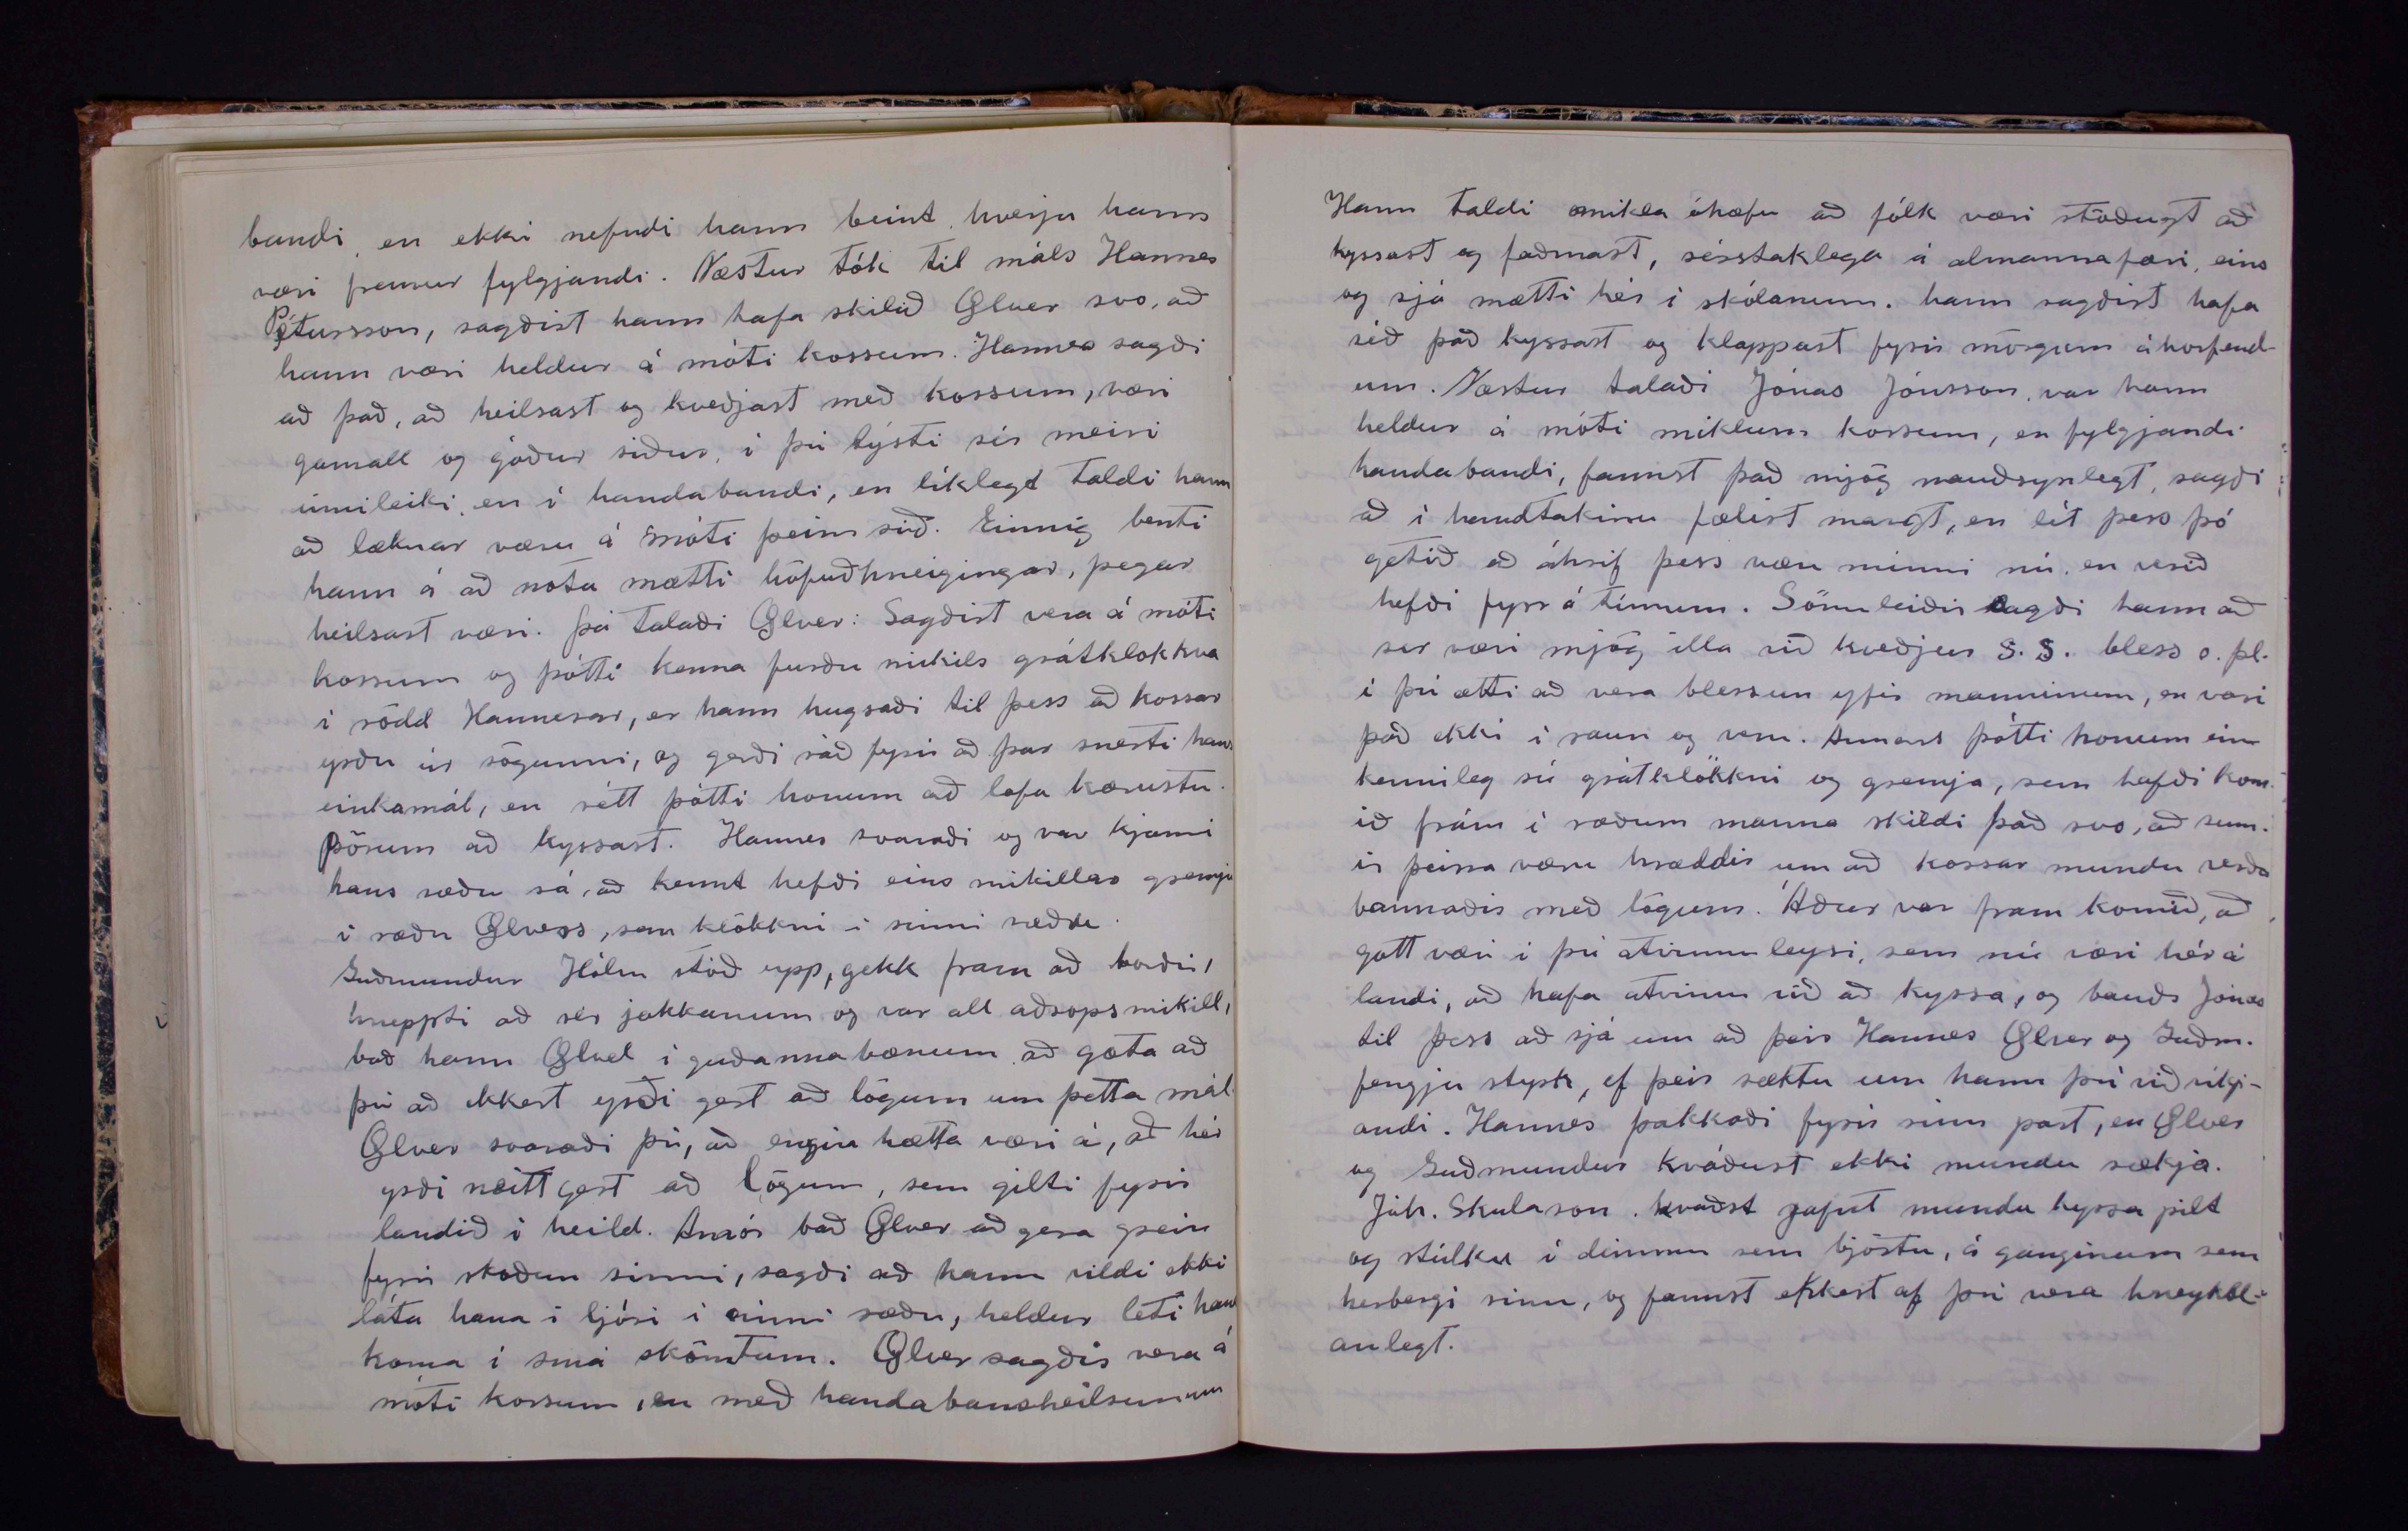 bandi, en ekki nefndi hann beint hverju hann
væri fremur fylgjandi. Næstur tók til máls Hannes
Pétursson, sagðist hann hafa skilið Ölver svo, að
hann væri heldur á móti kossum. Hannes sagði
að það, að heilsast og kveðjast með kossum, væri
gamall og góður siður, í því lýsti sér meiri
innileiki, en í handabandi, en líklegt taldi hann
að læknar væru á móti þeim sið. Einnig benti
hann á að nota mætti höfuðhneigingar, þegar
heilsast væri. Þá talaði Ölver: Sagðist vera á móti
kossum og þótti kenna furðu mikils grátklökkva
í rödd Hannesar, er hann hugsaði til þess að kossar
yrðu úr sögunni, og gerði ráð fyrir að þar snerti hans
einkamál, en rétt þótti honum að lofa kærustu-
pörum að kyssast. Hannes svaraði og var kjarni
hans ræðu sá, að kennt hefði eins mikillar gremju
í ræðu Ölvers, sem klökkni í sinni ræðu.
Guðmundur Hólm stóð upp, gekk fram að borði,
hneppti að sér jakkanum og var all aðsopsmikill,
bað hann Ölvel í guðanna bænum að gæta að
því að ekkert yrði gert að lögum um þetta mál.
Ölver svaraði því, að engin hætta væri á, að hér
yrði neitt gert að lögum, sem gilti fyrir
landið í heild. Arnór bað Ölver að gera grein
fyrir skoðun sinni, sagði að hann vildi ekki
láta hana í ljósi í einni ræðu, heldur léti hana
koma í smá skömtum. Ölver sagðis vera á
móti kossum, en með handabansheilsununum
Hann taldi mikla óhæfu að fólk væri stöðugt að
kyssast og faðmast, sérstaklega á almannafæri, eins
og sjá mætti hér í skólanum. hann sagðist hafa
séð það kyssast og klappast fyrir mörgum áhorfend-
um. Næstur talaði Jónas Jónsson, var hann
heldur á móti miklum kossum, en fylgjandi
handabandi, fannst það mjög nauðsynlegt, sagði
að í handtakinu fælist margt, en lét þess þó
getið að áhrif þess væru minni nú, en verið
hefði fyrr á tímum. Sömuleiðis sagði hann að
sér væri mjög illa við kveðjur s.s. bless o.þl.
í því ætti að vera blessun yfir manninum, en væri
það ekki í raun og veru. Annars þótti honum ein
kennileg sú grátklökkni og gremja, sem hafði kom-
ið fram í ræðum manna skildi það svo, að sum-
ir þeirra væru hræddir um að kossar mundu verða
bannaðir með lögum. Áður var fram komið, að
gott væri í því atvinnuleysi, sem nú væri hér á
landi, að hafa atvinnu við að kyssa, og bauðs Jónas
til þess að sjá um að þeir Hannes Ölver og Guðm.
fengju styrk, ef þeir sæktu um hann því viðvíkj-
andi. Hannes þakkaði fyrir sinn part, en Ölver
og Guðmundur kváðust ekki mundu sækja.
Jóh. Skulason. kvaðst jafnt mundu kyssa pilt
og stúlku í dimmu sem björtu, á ganginum sem
herbergi sinu, og fannst ekkert af því vera hneyksl-
anlegt.